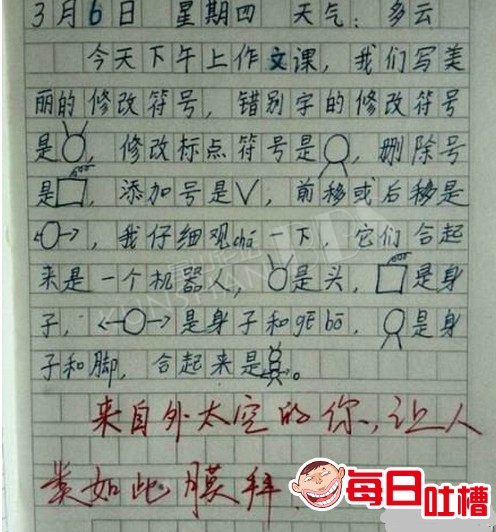 3月6日 星期四 天气：多云
今天下午上作文课，我们写美
丽的修改符号，错别字的修改符号
是，修改标点符号是，删除号
是，添加号是√，前移或后移是
，我仔细观chá一下，它们合起
来是一个机器人，是头，是身
子，是身子和gē bō，是身
子和脚，合起来是。
来自外太空的你，让人
类如此膜拜.
每日吐槽